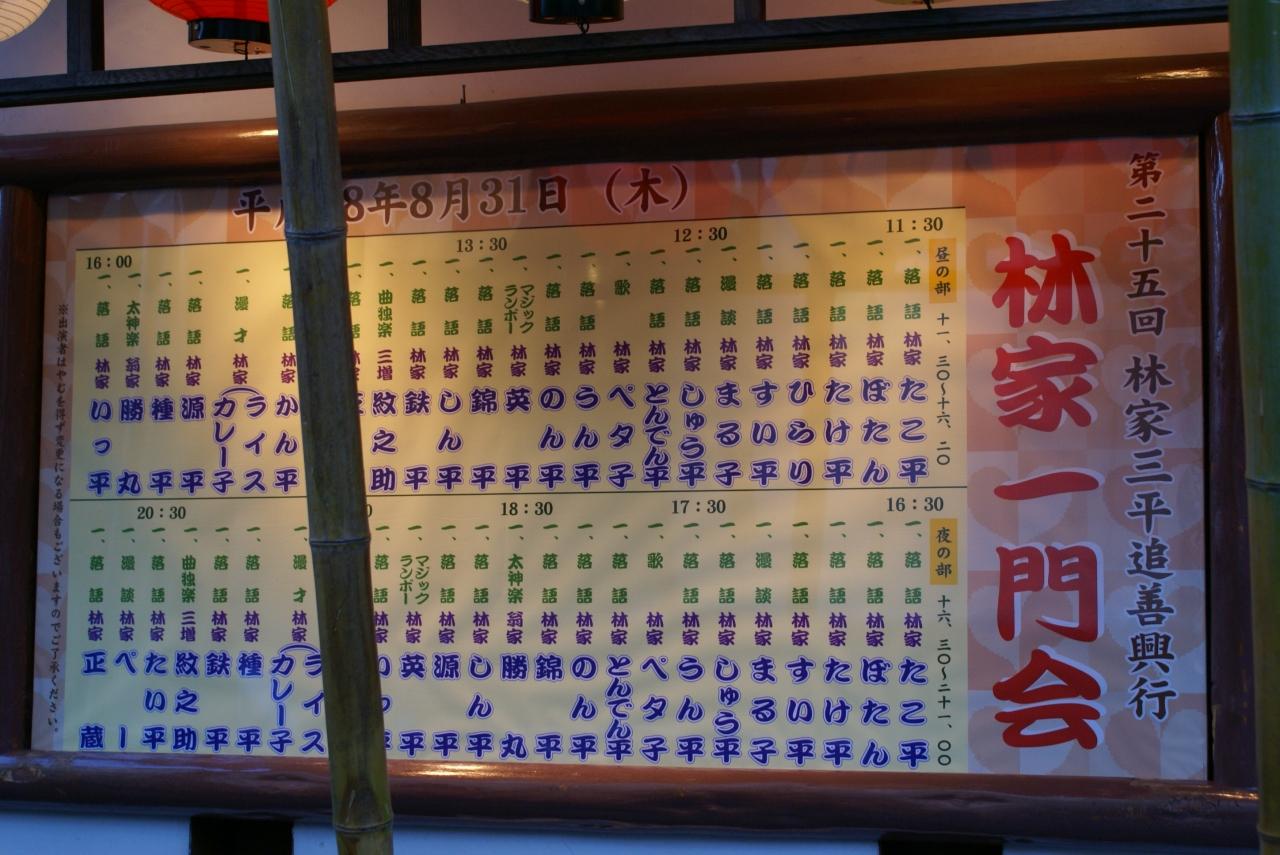 第二十五回 林家三平追善興行
林家一門会
平 8年8月31日（木）
11:30
12:30
13:30
16:00
昼の部 十一、三〇〜十六、二〇
一、落語 林家 たこ平
一、落語 林家 ぼたん
一、落語 林家 たけ平
一、落語 林家 ひらり
一、落語 林家 すい平
一、漫談 林家 まる子
一、落語 林家 しゅう平
一、落語 林家 とんでん平
一、歌 林家 ペタ子
一、落語 林家 うん平
一、落語 林家 のん平
マジックランボー 林家 英平
一、落語 林家 錦平
一、落語 林家 しん平
一、落語 林家 鉄平
一、曲独楽 三増 紋之助
落語
一、落語 林家 かん平
一、漫才 林家（ライス カレー子
一、落語 林家 源平
一、落語 林家 種平
一、太神楽 翁家 勝丸
一、落語 林家 いっ平
16:30
17:30
18:30
20:30
夜の部 十六、三〇〜二十一、〇〇
一、落語 林家 たこ平
一、落語 林家 ぼたん
一、落語 林家 たけ平
一、落語 林家 すい平
一、漫談 林家 まる子
一、落語 林家 しゅう平
一、落語 林家 うん平
一、歌 林家 ペタ子
一、落語 林家 とんでん平
一、落語 林家 のん平
一、落語 林家 錦平
一、太神楽 翁家 勝丸
一、落語 林家 しん平
一、落語 林家 源平
マジックランボー 林家 英平
一、落語 林家 いっ平
一、漫才 林家（ライス カレー子
一、落語 林家 種平
一、落語 林家 鉄平
一、曲独楽 三増 紋之助
一、落語 林家 たい平
一、漫談 林家 ペー
一、落語 林家 正蔵
※出演者はやむを得ず変更になる場合もございますのでご了承ください。